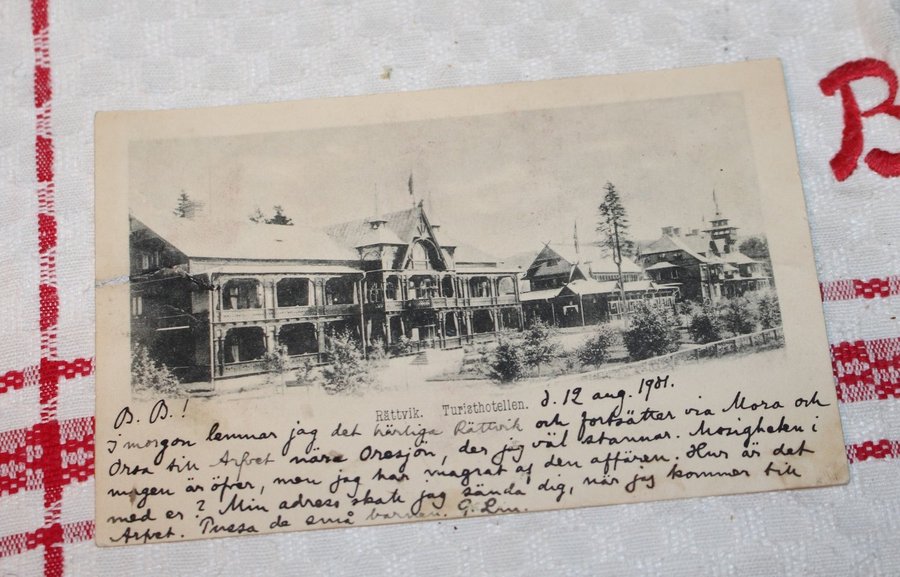 B
Rättvik. Turisthotellen.
d. 12 aug. 1901.
B. B.!
I morgon lemnar jag det härliga Rättvik och fortsätter via Mora och
Orsa till Arfvet nära Oresjön, der jag väl stannar. Mosigheten i
magen är öfver, men jag har magrat af den affären. Hur är det
med er? Min adress skall jag sända dig, när jag kommer till
Arfvet. Pussa de små barnen. G. Lm.